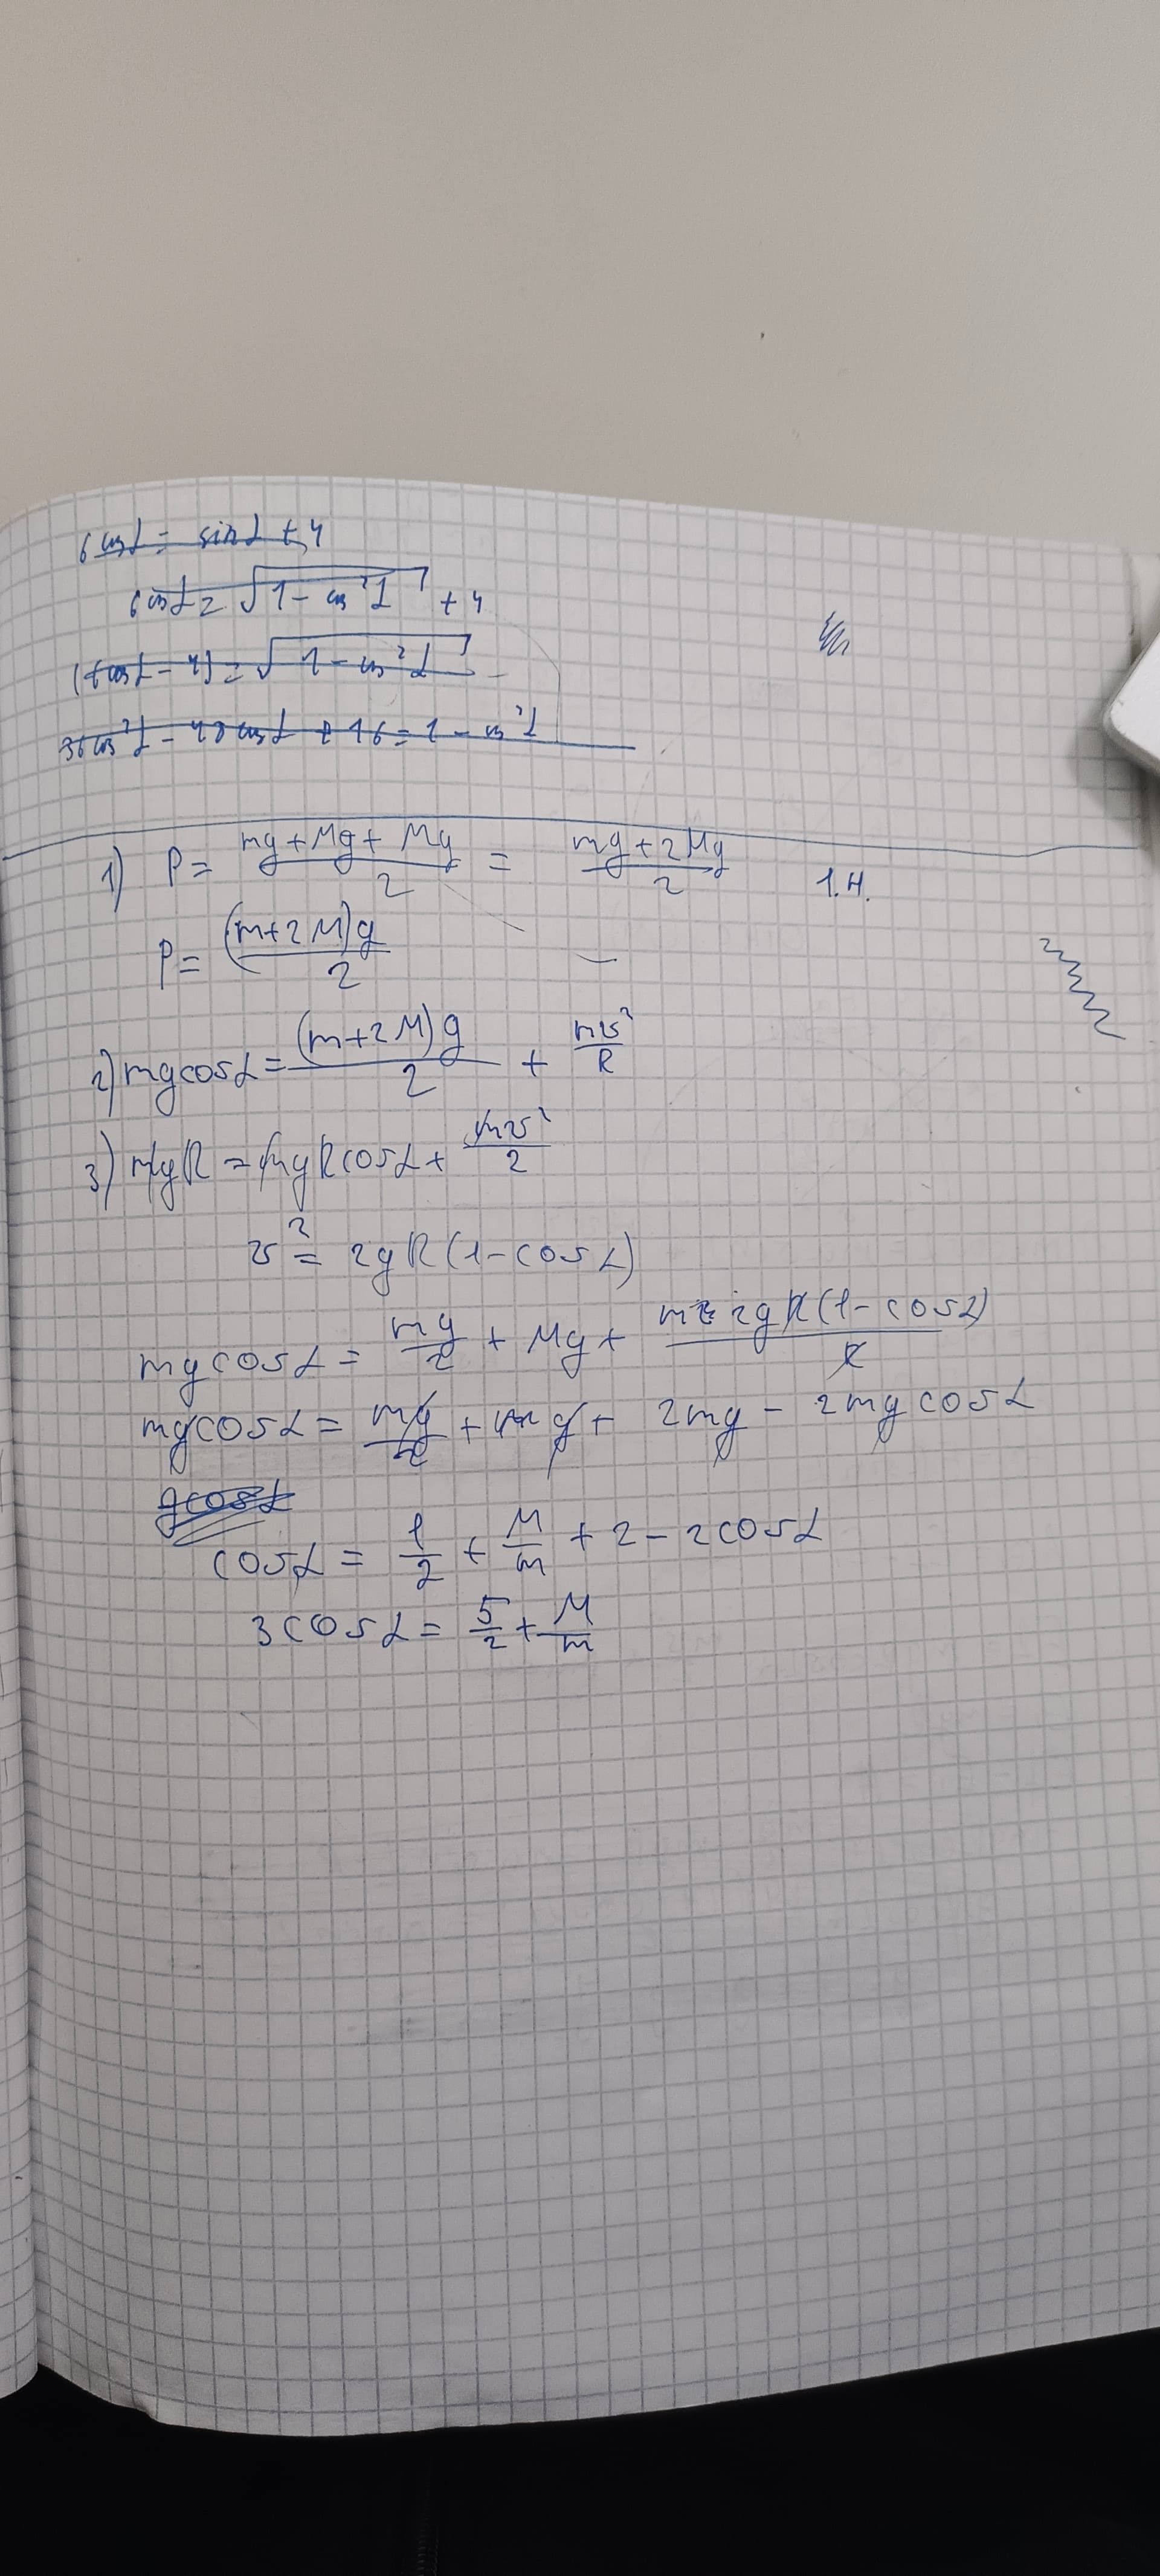 6cosα = sinα + 4
6cosα = √(1 - cos²α) + 4
(6cosα - 4) = √(1 - cos²α)
36cos²α - 48cosα + 16 = 1 - cos²α
1) P = (mg + Mg + Mg)/2 = (mg + 2Mg)/2 1.H.
P = (m+2M)g/2
2) mgcosα = (m+2M)g/2 + mv²/R
3) mgR = mgRcosα + mv²/2
v² = 2gR(1-cosα)
mgcosα = mg/2 + Mg + m 2gR(1-cosα)/R
mgcosα = mg/2 + Mg + 2mg - 2mgcosα
gcosα
cosα = 1/2 + M/m + 2 - 2cosα
3cosα = 5/2 + M/m